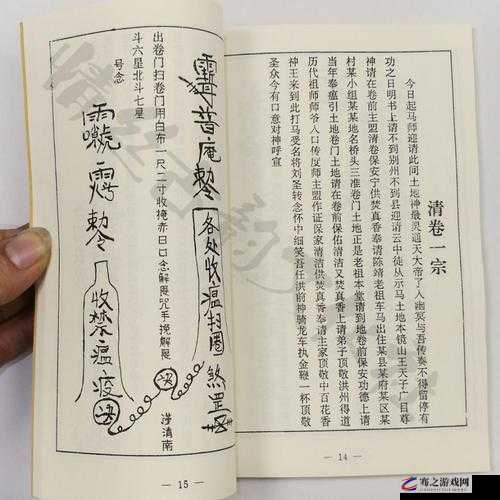 清卷一宗
今日起马师迎请此间土地神最灵通天大帝了入幽冥与吾传奏不得留停有
功之日明书上请不到别州不到县迎请云中徒从示马土地本镜山王天子广目尊
神请在卷前主盟清卷保安宁供焚真香奉请陈靖老祖车马出住某县某府某区某
村某小组某某地名桥头三准卷门土地正是老祖本堂请到地卷前保安功德上请
当年奉瘟引土地卷门土地请在卷前保佑清洁又焚真香奉上请弟子顶敬洪州得道
历代祖师师爷人口传度师主盟作证保家清洁供焚真香奉请主家顶敬中百花香
神王来到此打马受名将刘圣转念怀中细笑吾任洪前神骑龙车执金鞭一杯顶敬
圣众今有口意对神呼宣
— 14 —
普庵敕
各处收瘟扫圈煞罡
出卷门扫卷门用白布一尺二寸收掩赤日口念解厄咒手挽解厄
斗六星北斗七星
号念
敕令
收禁瘟疫
涉滇南
— 15 —
寄之游戏网